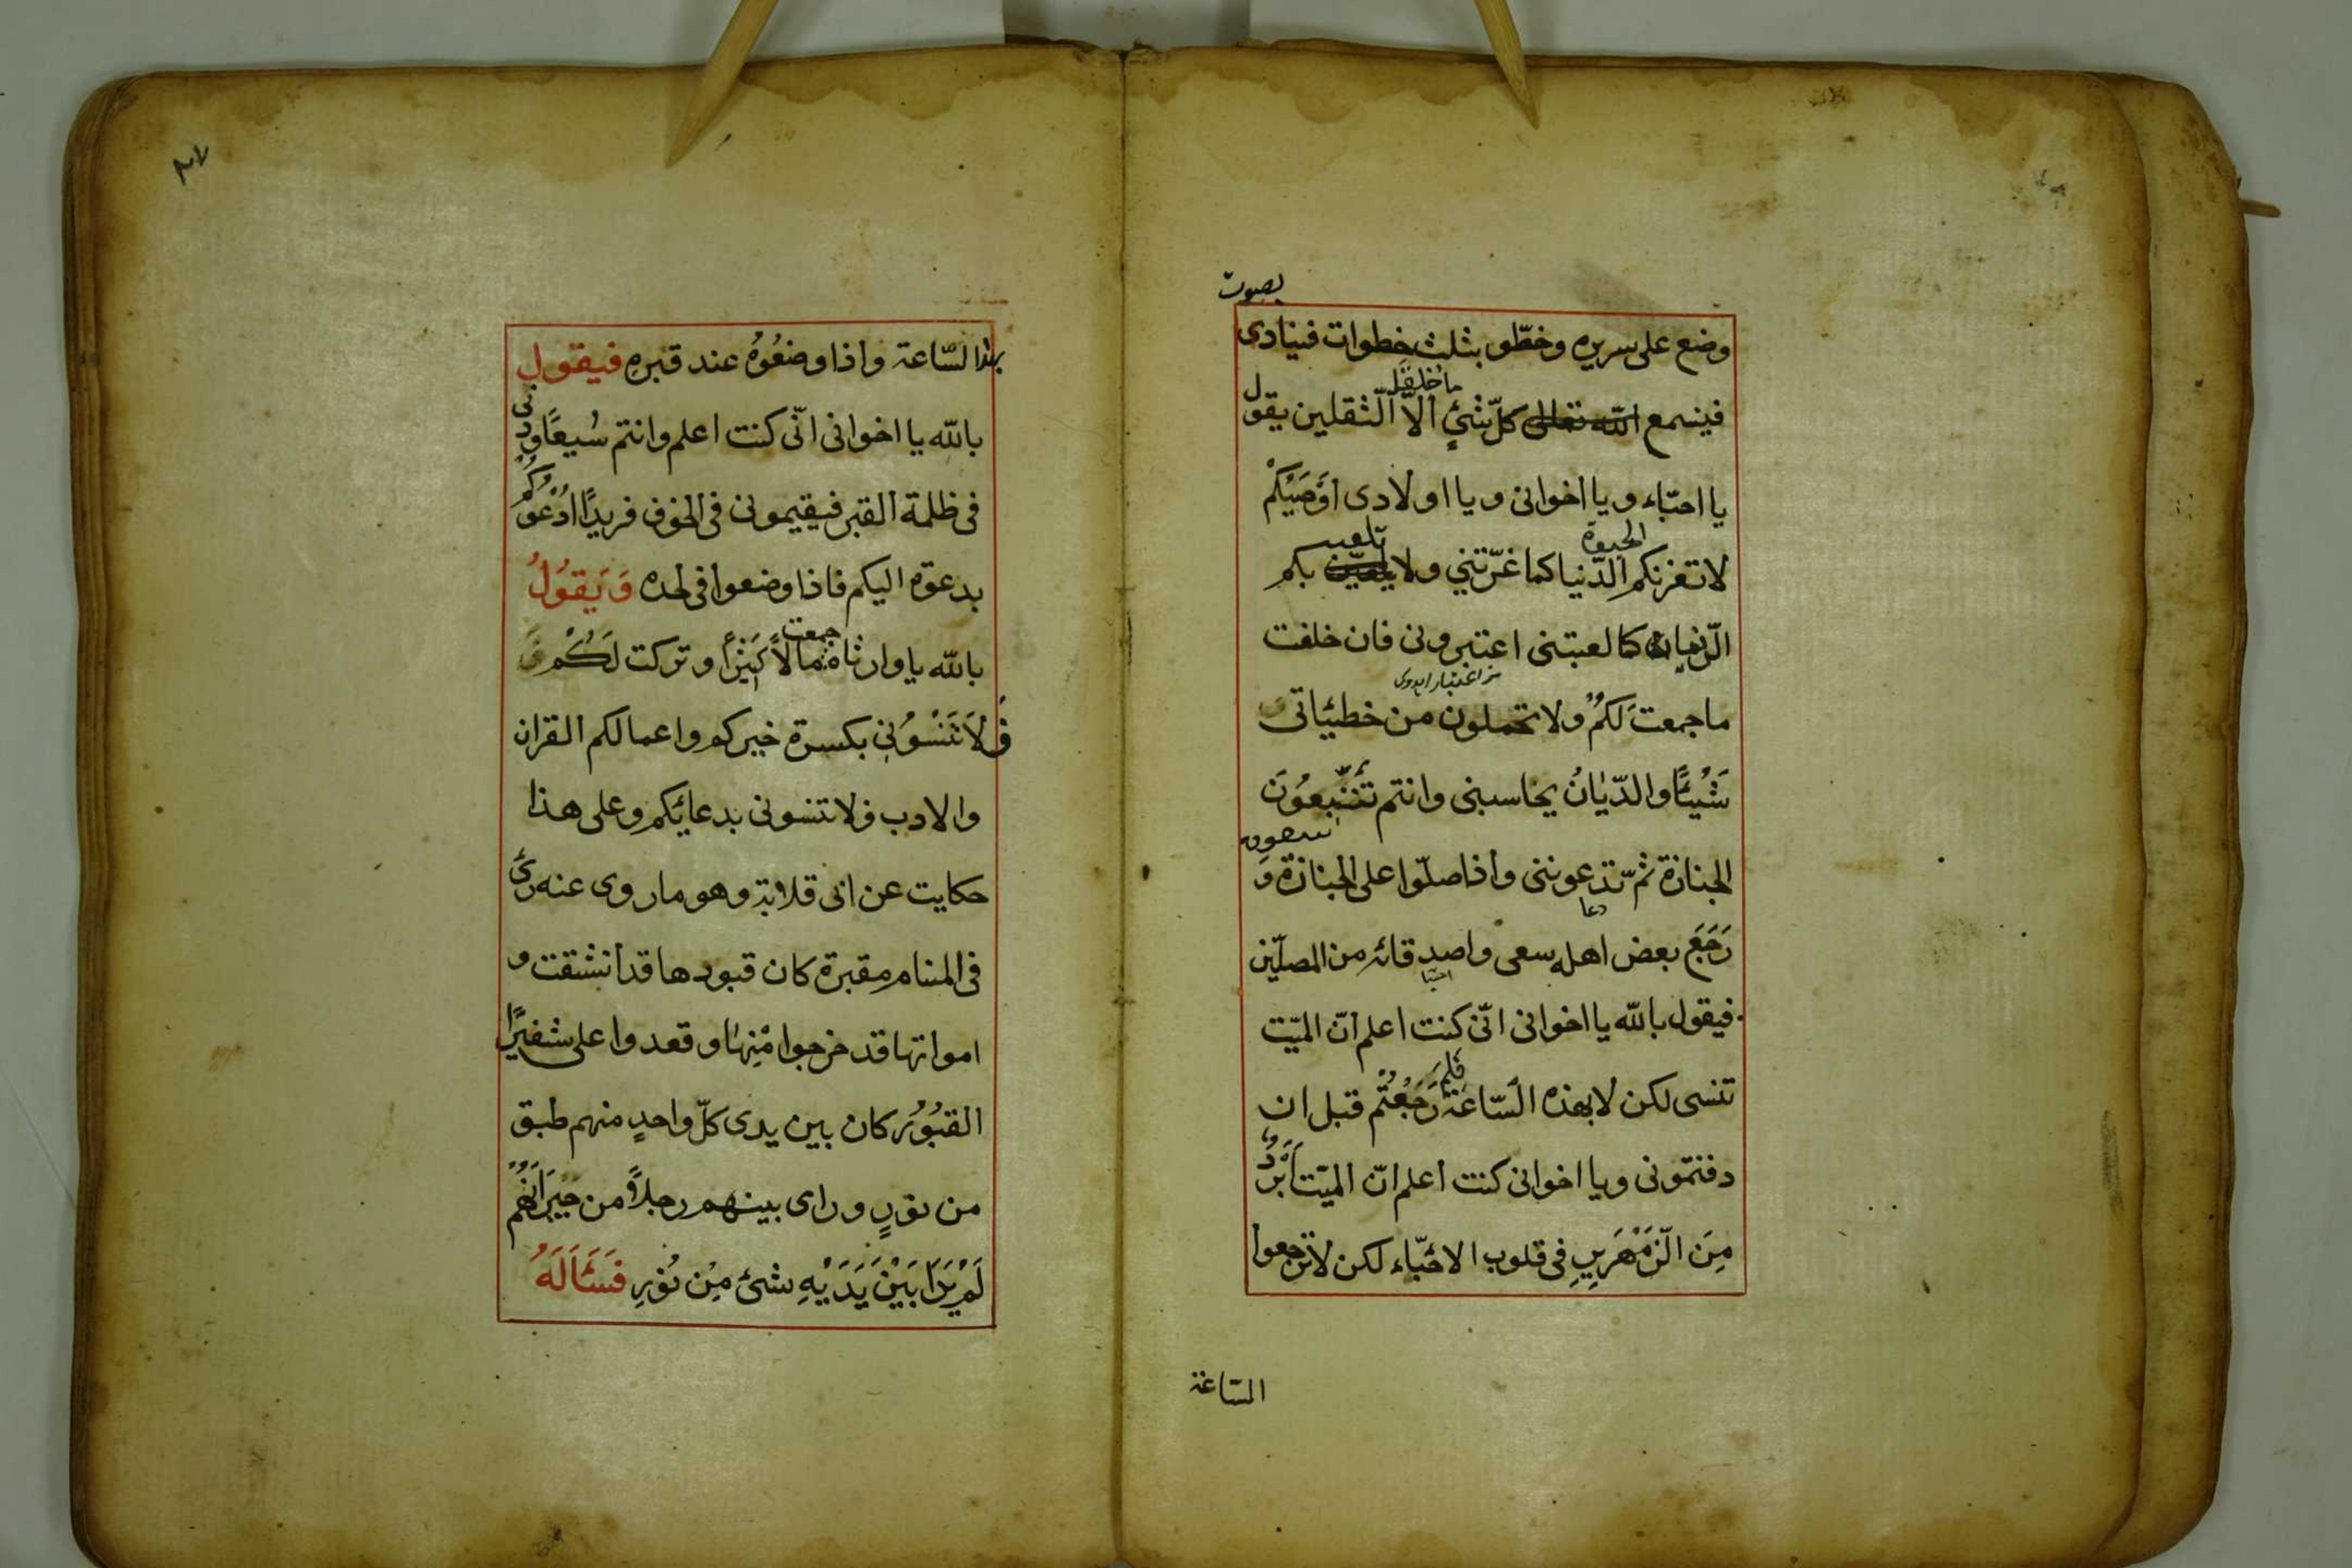 بصوت
وضع على سريره وخطّو بثلث خطوات فينادى
فيسمع الله تعالى كلّ شئ الّا الّثقلين يقول
ما خلق الله
يا احبّاء ويا اخوانى ويا اولادى اوَصَيْكُمْ
الحيوة
تلعبن
لا تغرنكم الدّنيا كما غرّتنى ولا بكم
الزمان كما لعبتنى اعتبرونى فان خلفت
ما جمعت لَكُمْ ولا تحملون من خطيئاتى
شَيْئًا والدّيّانُ يحاسبنى وانتم
الجنازة ثمّ تدعوننى واذا صلّوا على الجنازة وَ
دعا
رَجَعَ بعض اهله سعى واصدقائه من المصلّين
فيقول بالله يا اخوانى انّى كنت اعلم انّ الميّت
تنسى لكن لا بهذه السّاعَة رَجَعْتُم قبل ان
دفنتمونى ويا اخوانى كنت اعلم انّ الميّت اَبْرَدُ
مِنَ الزَّمْهَرِيرِ فى قلوب الاحبّاء لكن لا ترجعوا
السّاعة
بهذا السّاعة واذا وضعُوهُ عند قبرهِ فيقول
بالله يا اخوانى انّى كنت اعلم وانتم
فى ظلمة القبر فيقيمونى فى الخوف فريدًا ادْعُوكُم
بدعوة اليكم فاذا وضعوا فى لحده وَيَقُولُ
جمعت
بالله يا وارثاه مالًا كَثِيرًا وتركت لَكُمْ
فَلَا تَنْسُونِى بكسرة خيركم واعمالكم القران
والادب فلا تنسونى بدعائكم وعلى هذا
حكايت عن ابى قلابة وهو ما روى عنه رَئ
فى المنام مقبرة كان قبورها قد انشقت و
امواتها قد خرجوا مِنْهَا وقعدوا على شفيرًا
القبُور كان بين يدى كلّ واحدٍ منهم طبق
من نورٍ وراى بينهم رجلًا من جِيرَانِهُمْ
لَمْ يَرَا بَيْنَ يَدَيْهِ شئ مِن نُورِ فَسَئَالَهُ